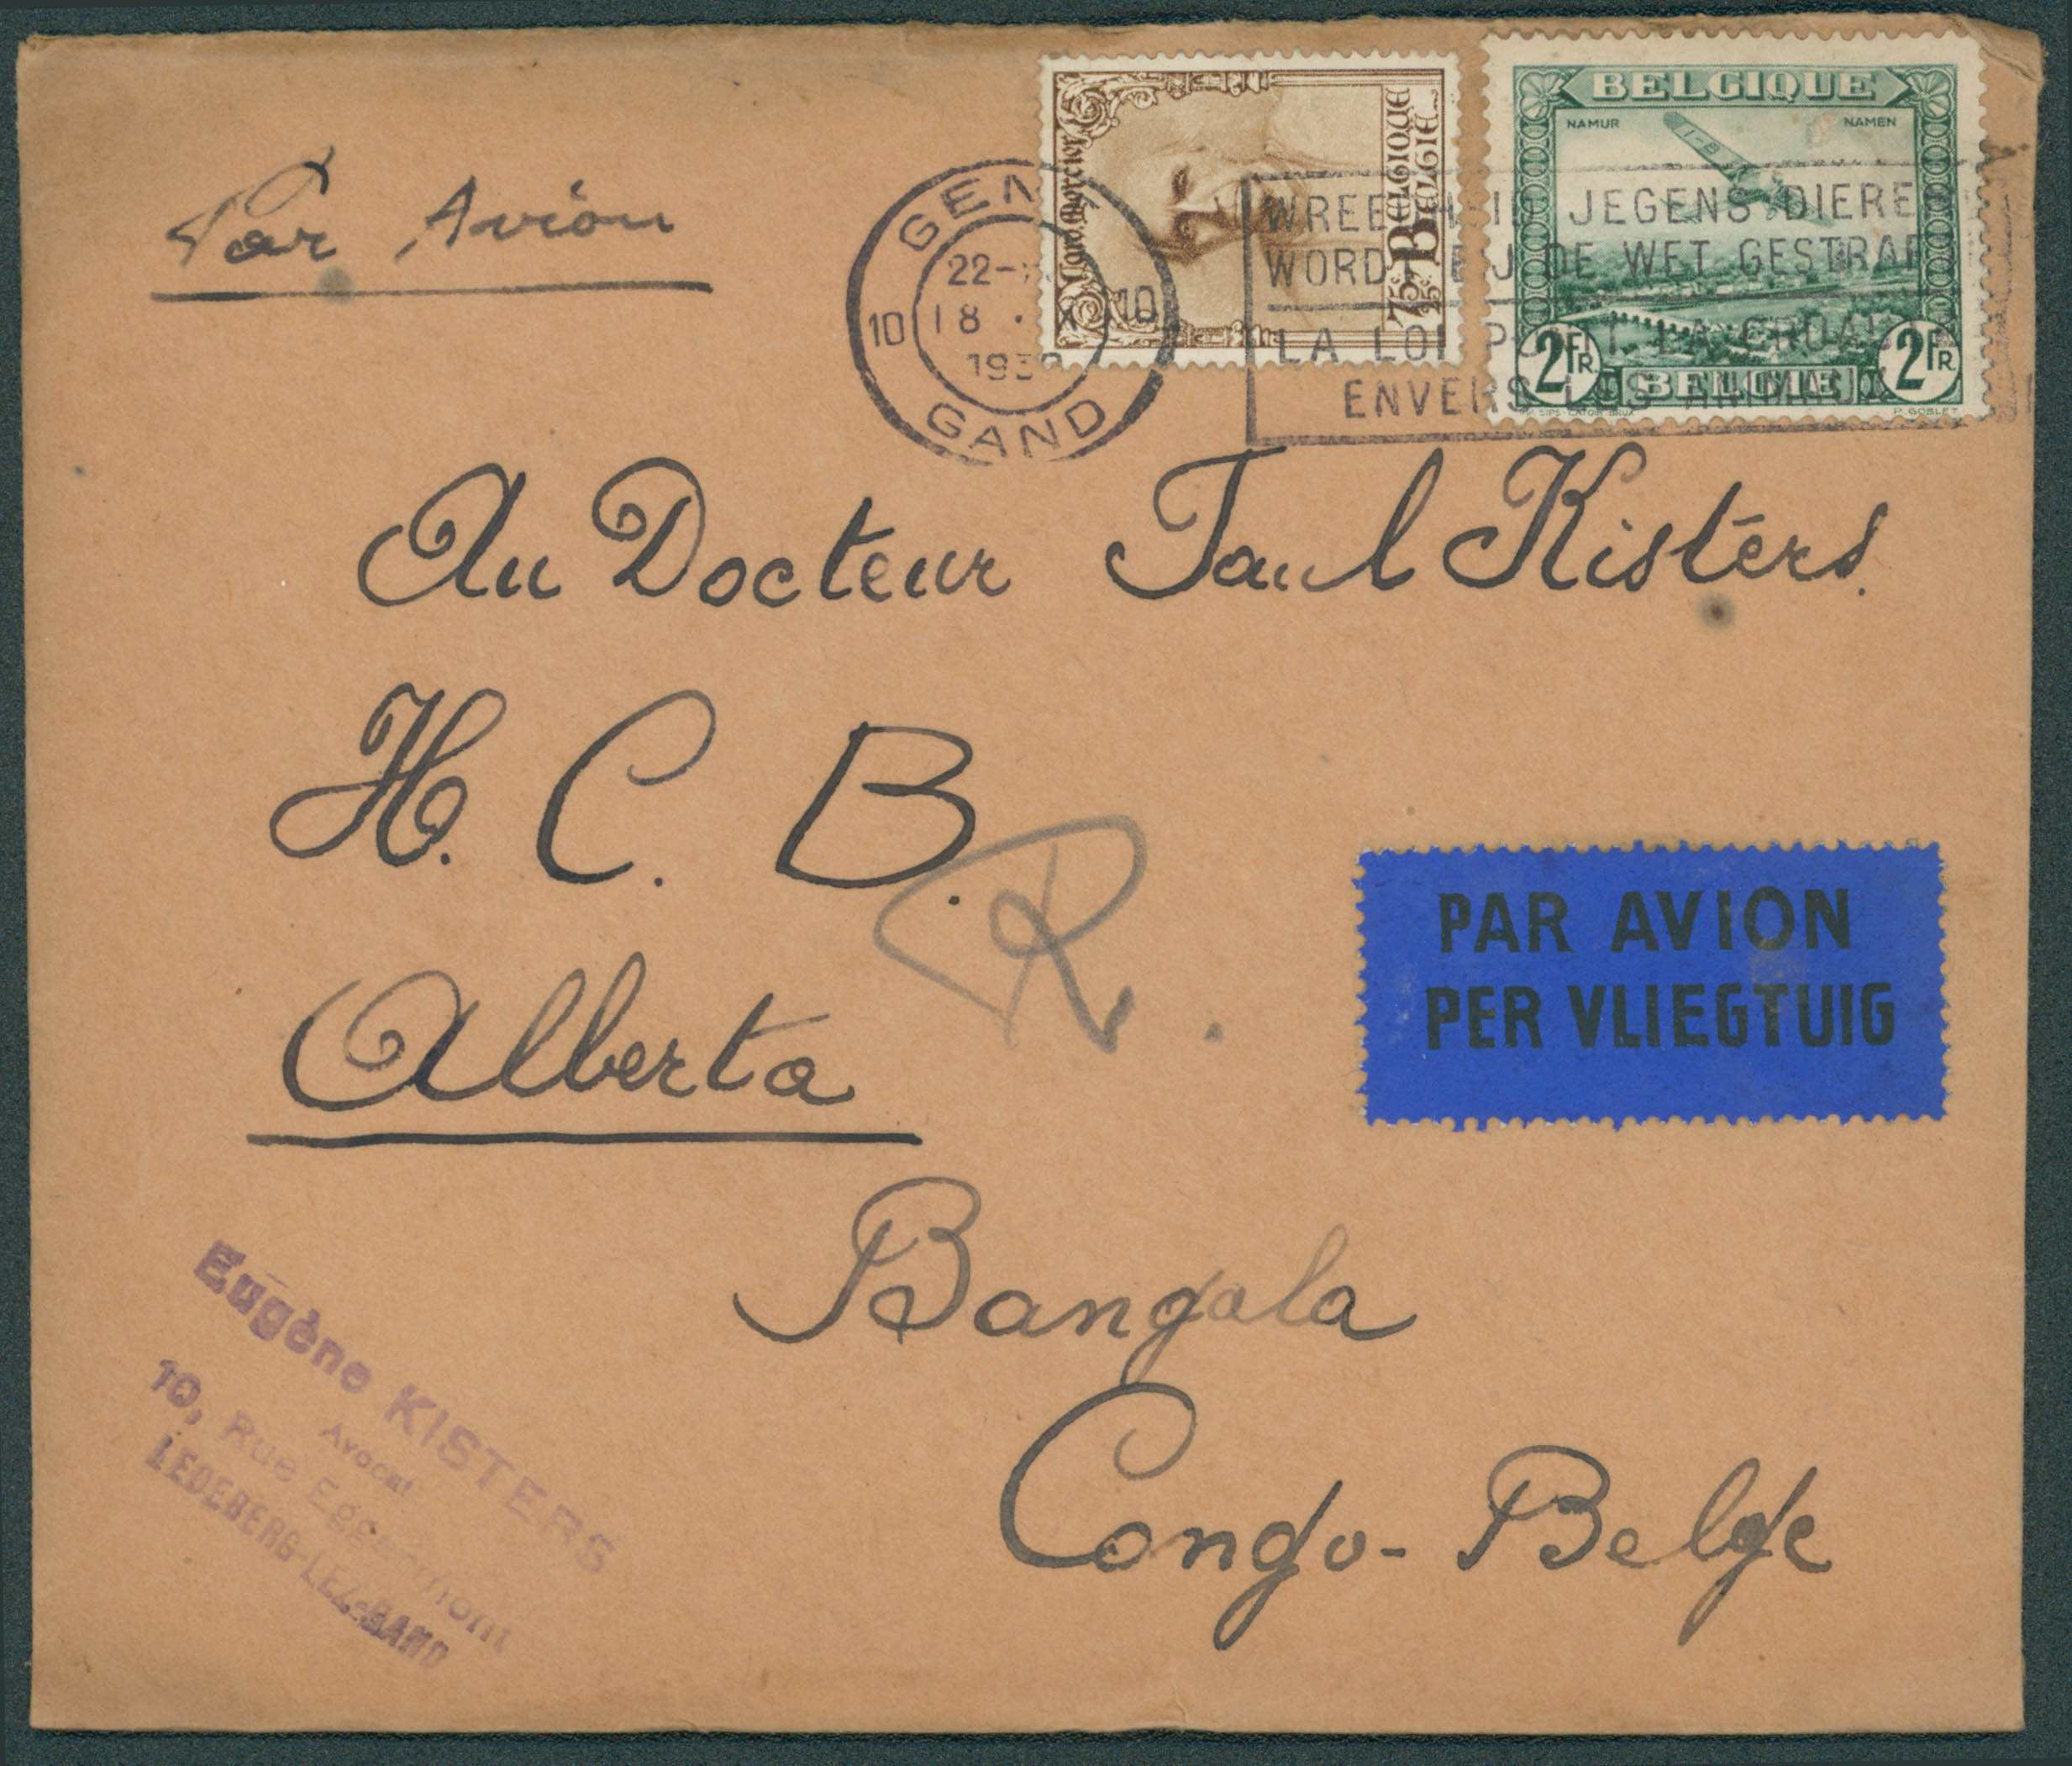 Par Avion
GENT
22-
10 18 . X 10
193
GAND
Card. Mercier
75c BELGIQUE
75c BELGIË
BELGIQUE
NAMUR NAMEN
2FR. BELGIË 2FR
P. GOBLET
WREEDHEID JEGENS DIEREN
WORDT BIJ DE WET GESTRAFT
LA LOI PUNIT LA CRUAUTE
ENVERS LES ANIMAUX
Au Docteur Paul Kisters.
H. C. B.
R.
Alberta
PAR AVION
PER VLIEGTUIG
Bangala
Congo-Belge
Eugène KISTERS
Avocat
10, Rue Eggermont
LEDEBERG-LEZ-GAND